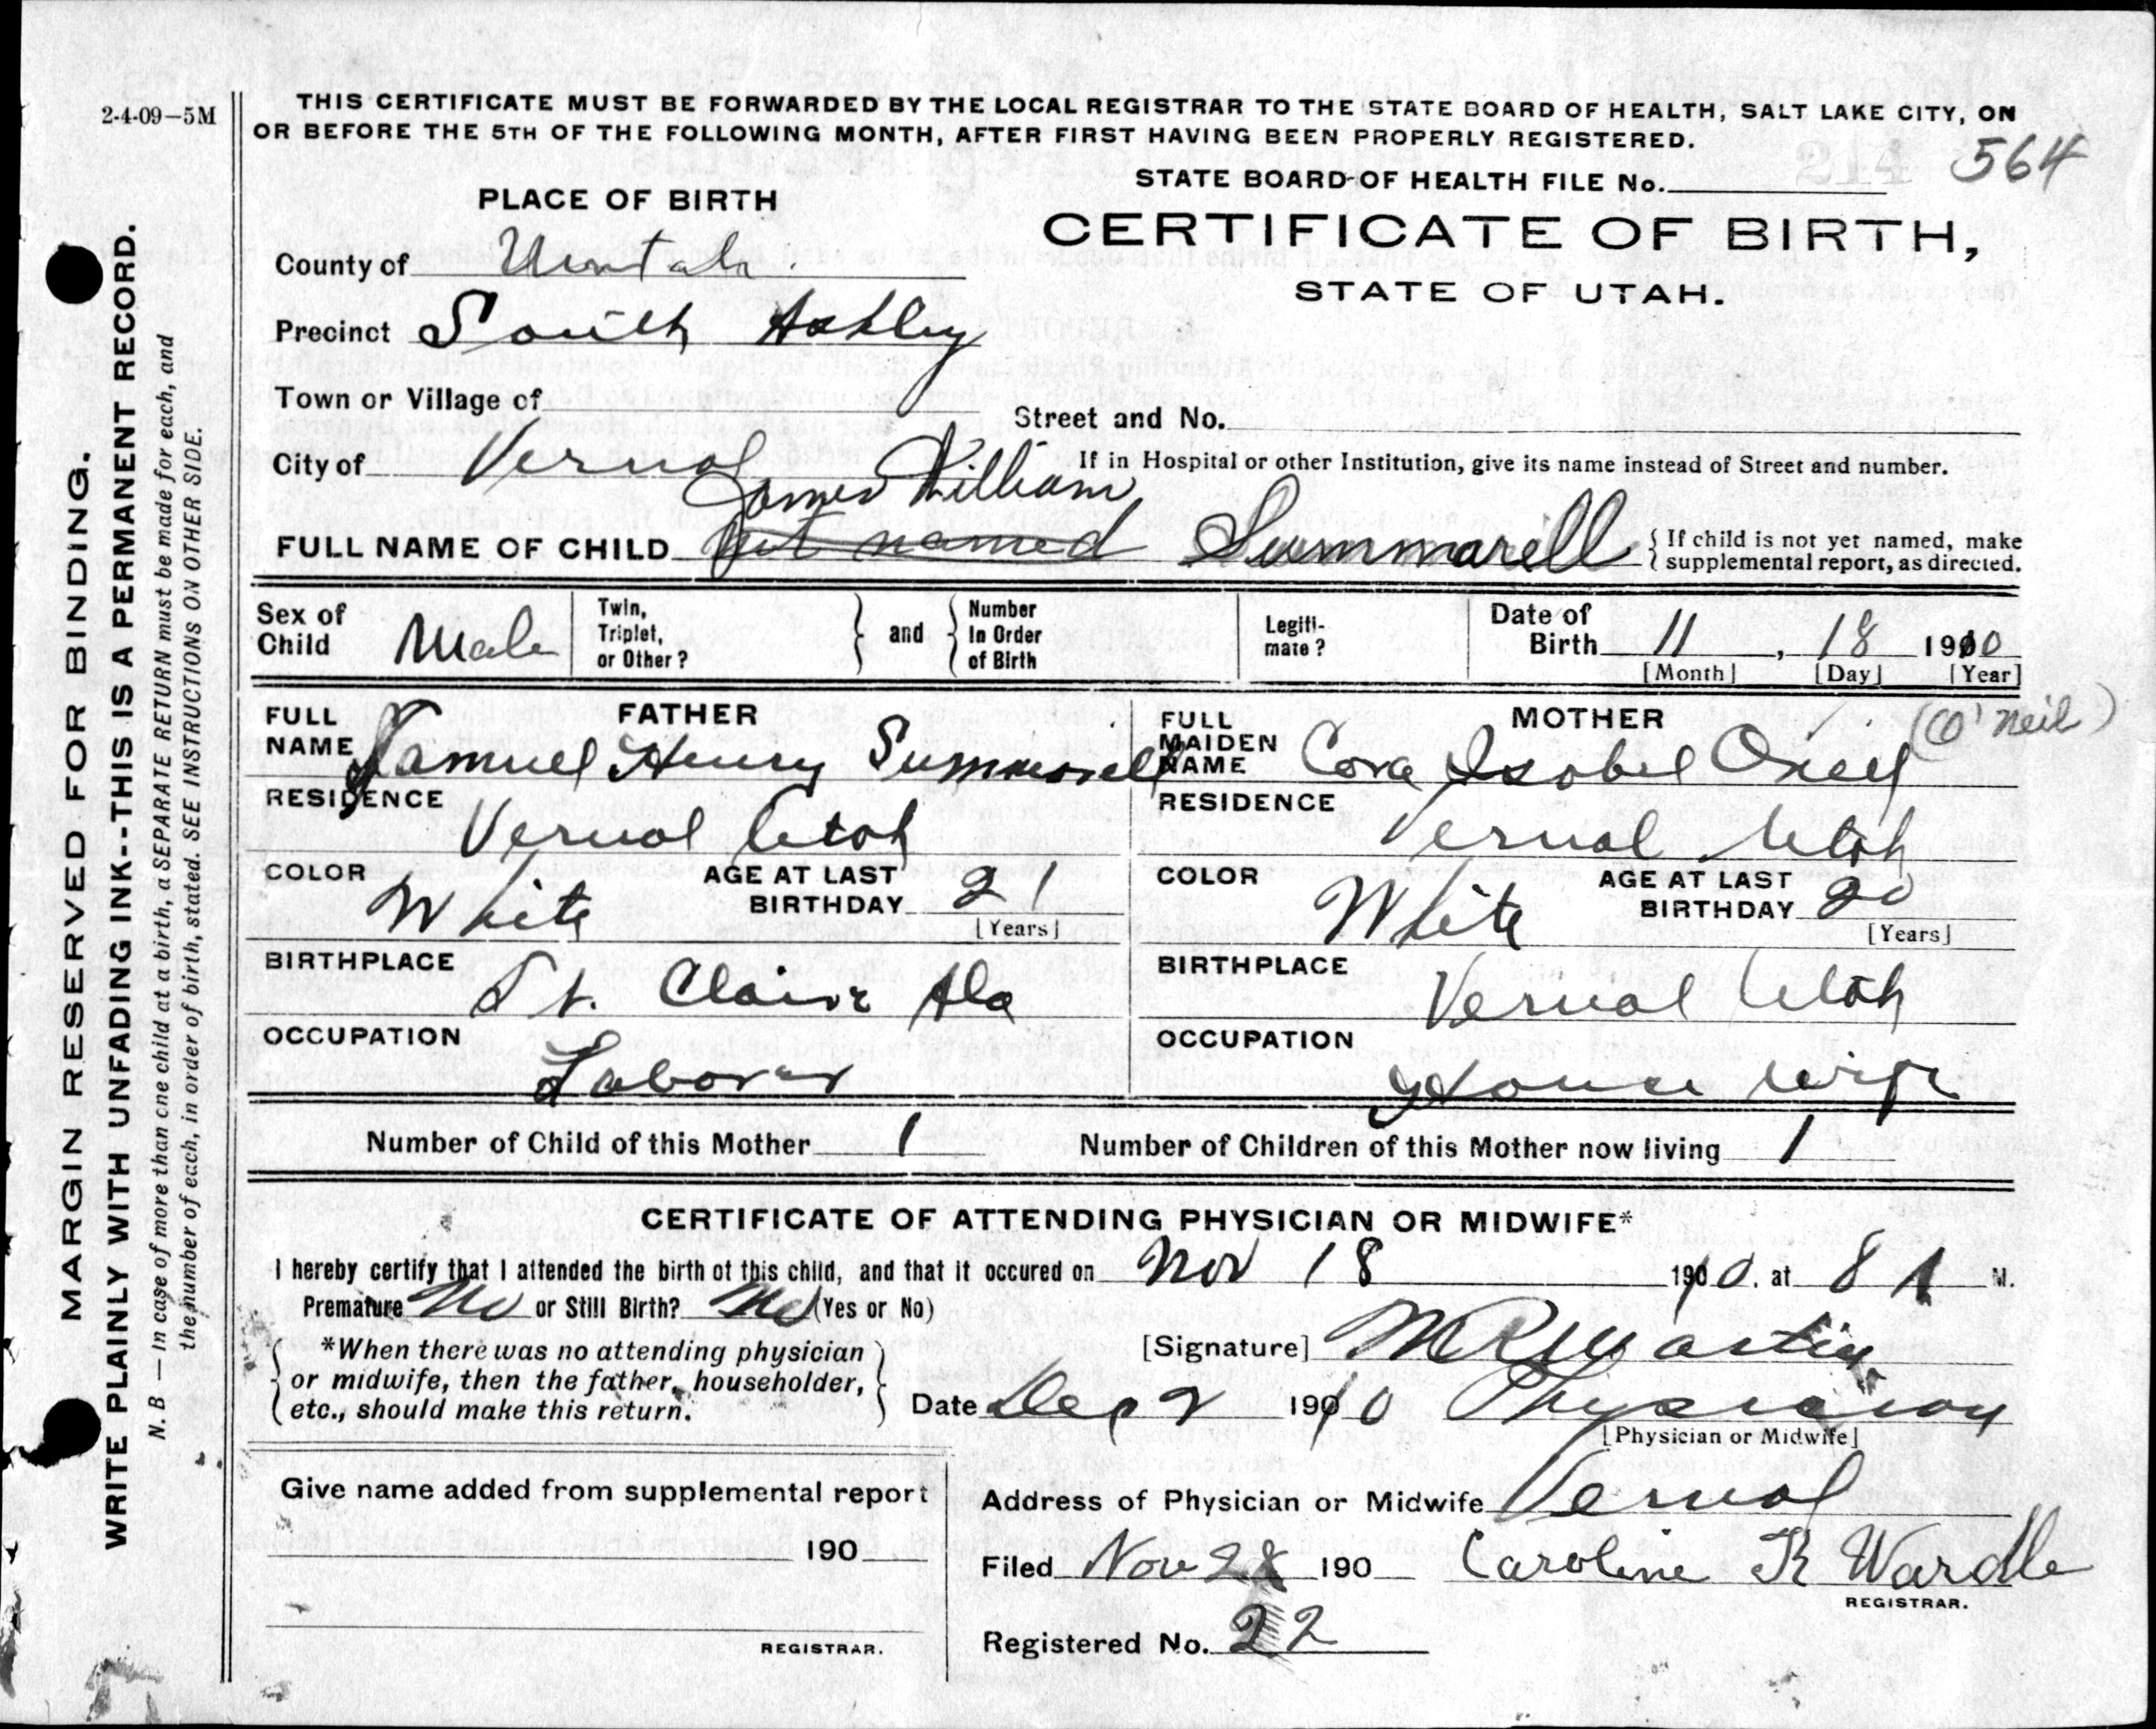 2-4-09—5M
THIS CERTIFICATE MUST BE FORWARDED BY THE LOCAL REGISTRAR TO THE STATE BOARD OF HEALTH, SALT LAKE CITY, ON
OR BEFORE THE 5TH OF THE FOLLOWING MONTH, AFTER FIRST HAVING BEEN PROPERLY REGISTERED.
STATE BOARD OF HEALTH FILE No. 214 564
PLACE OF BIRTH
CERTIFICATE OF BIRTH,
STATE OF UTAH.
County of Uintah
Precinct South Ashley
Town or Village of
Street and No.
City of Vernal
If in Hospital or other Institution, give its name instead of Street and number.
James William
FULL NAME OF CHILD not named Summarell
{ If child is not yet named, make
supplemental report, as directed.
Sex of Child Male
Twin, Triplet, or Other?
} and {
Number In Order of Birth
Legiti-mate?
Date of Birth 11, 18 1910
[Month] [Day] [Year]
FATHER
FULL NAME Samuel Henry Summerell
RESIDENCE
Vernal Utah
COLOR
White
AGE AT LAST BIRTHDAY 21
[Years]
BIRTHPLACE
St. Clair Ala
OCCUPATION
Laborer
MOTHER
FULL MAIDEN NAME Cora Isobel Oneil (O'Neil)
RESIDENCE
Vernal Utah
COLOR
White
AGE AT LAST BIRTHDAY 20
[Years]
BIRTHPLACE
Vernal Utah
OCCUPATION
House wife
Number of Child of this Mother 1
Number of Children of this Mother now living 1
CERTIFICATE OF ATTENDING PHYSICIAN OR MIDWIFE*
I hereby certify that I attended the birth of this child, and that it occured on Nov 18 1910. at 8 A M.
Premature No or Still Birth? No (Yes or No)
*When there was no attending physician
or midwife, then the father, householder,
etc., should make this return.
[Signature] M R Martin
Date Dec 2 1910 Physician
[Physician or Midwife]
Give name added from supplemental report
190
REGISTRAR.
Address of Physician or Midwife Vernal
Filed Nov 28 190 Caroline R Wardle
REGISTRAR.
Registered No. 22
MARGIN RESERVED FOR BINDING.
WRITE PLAINLY WITH UNFADING INK--THIS IS A PERMANENT RECORD.
N. B — In case of more than one child at a birth, a SEPARATE RETURN must be made for each, and
the number of each, in order of birth, stated. SEE INSTRUCTIONS ON OTHER SIDE.